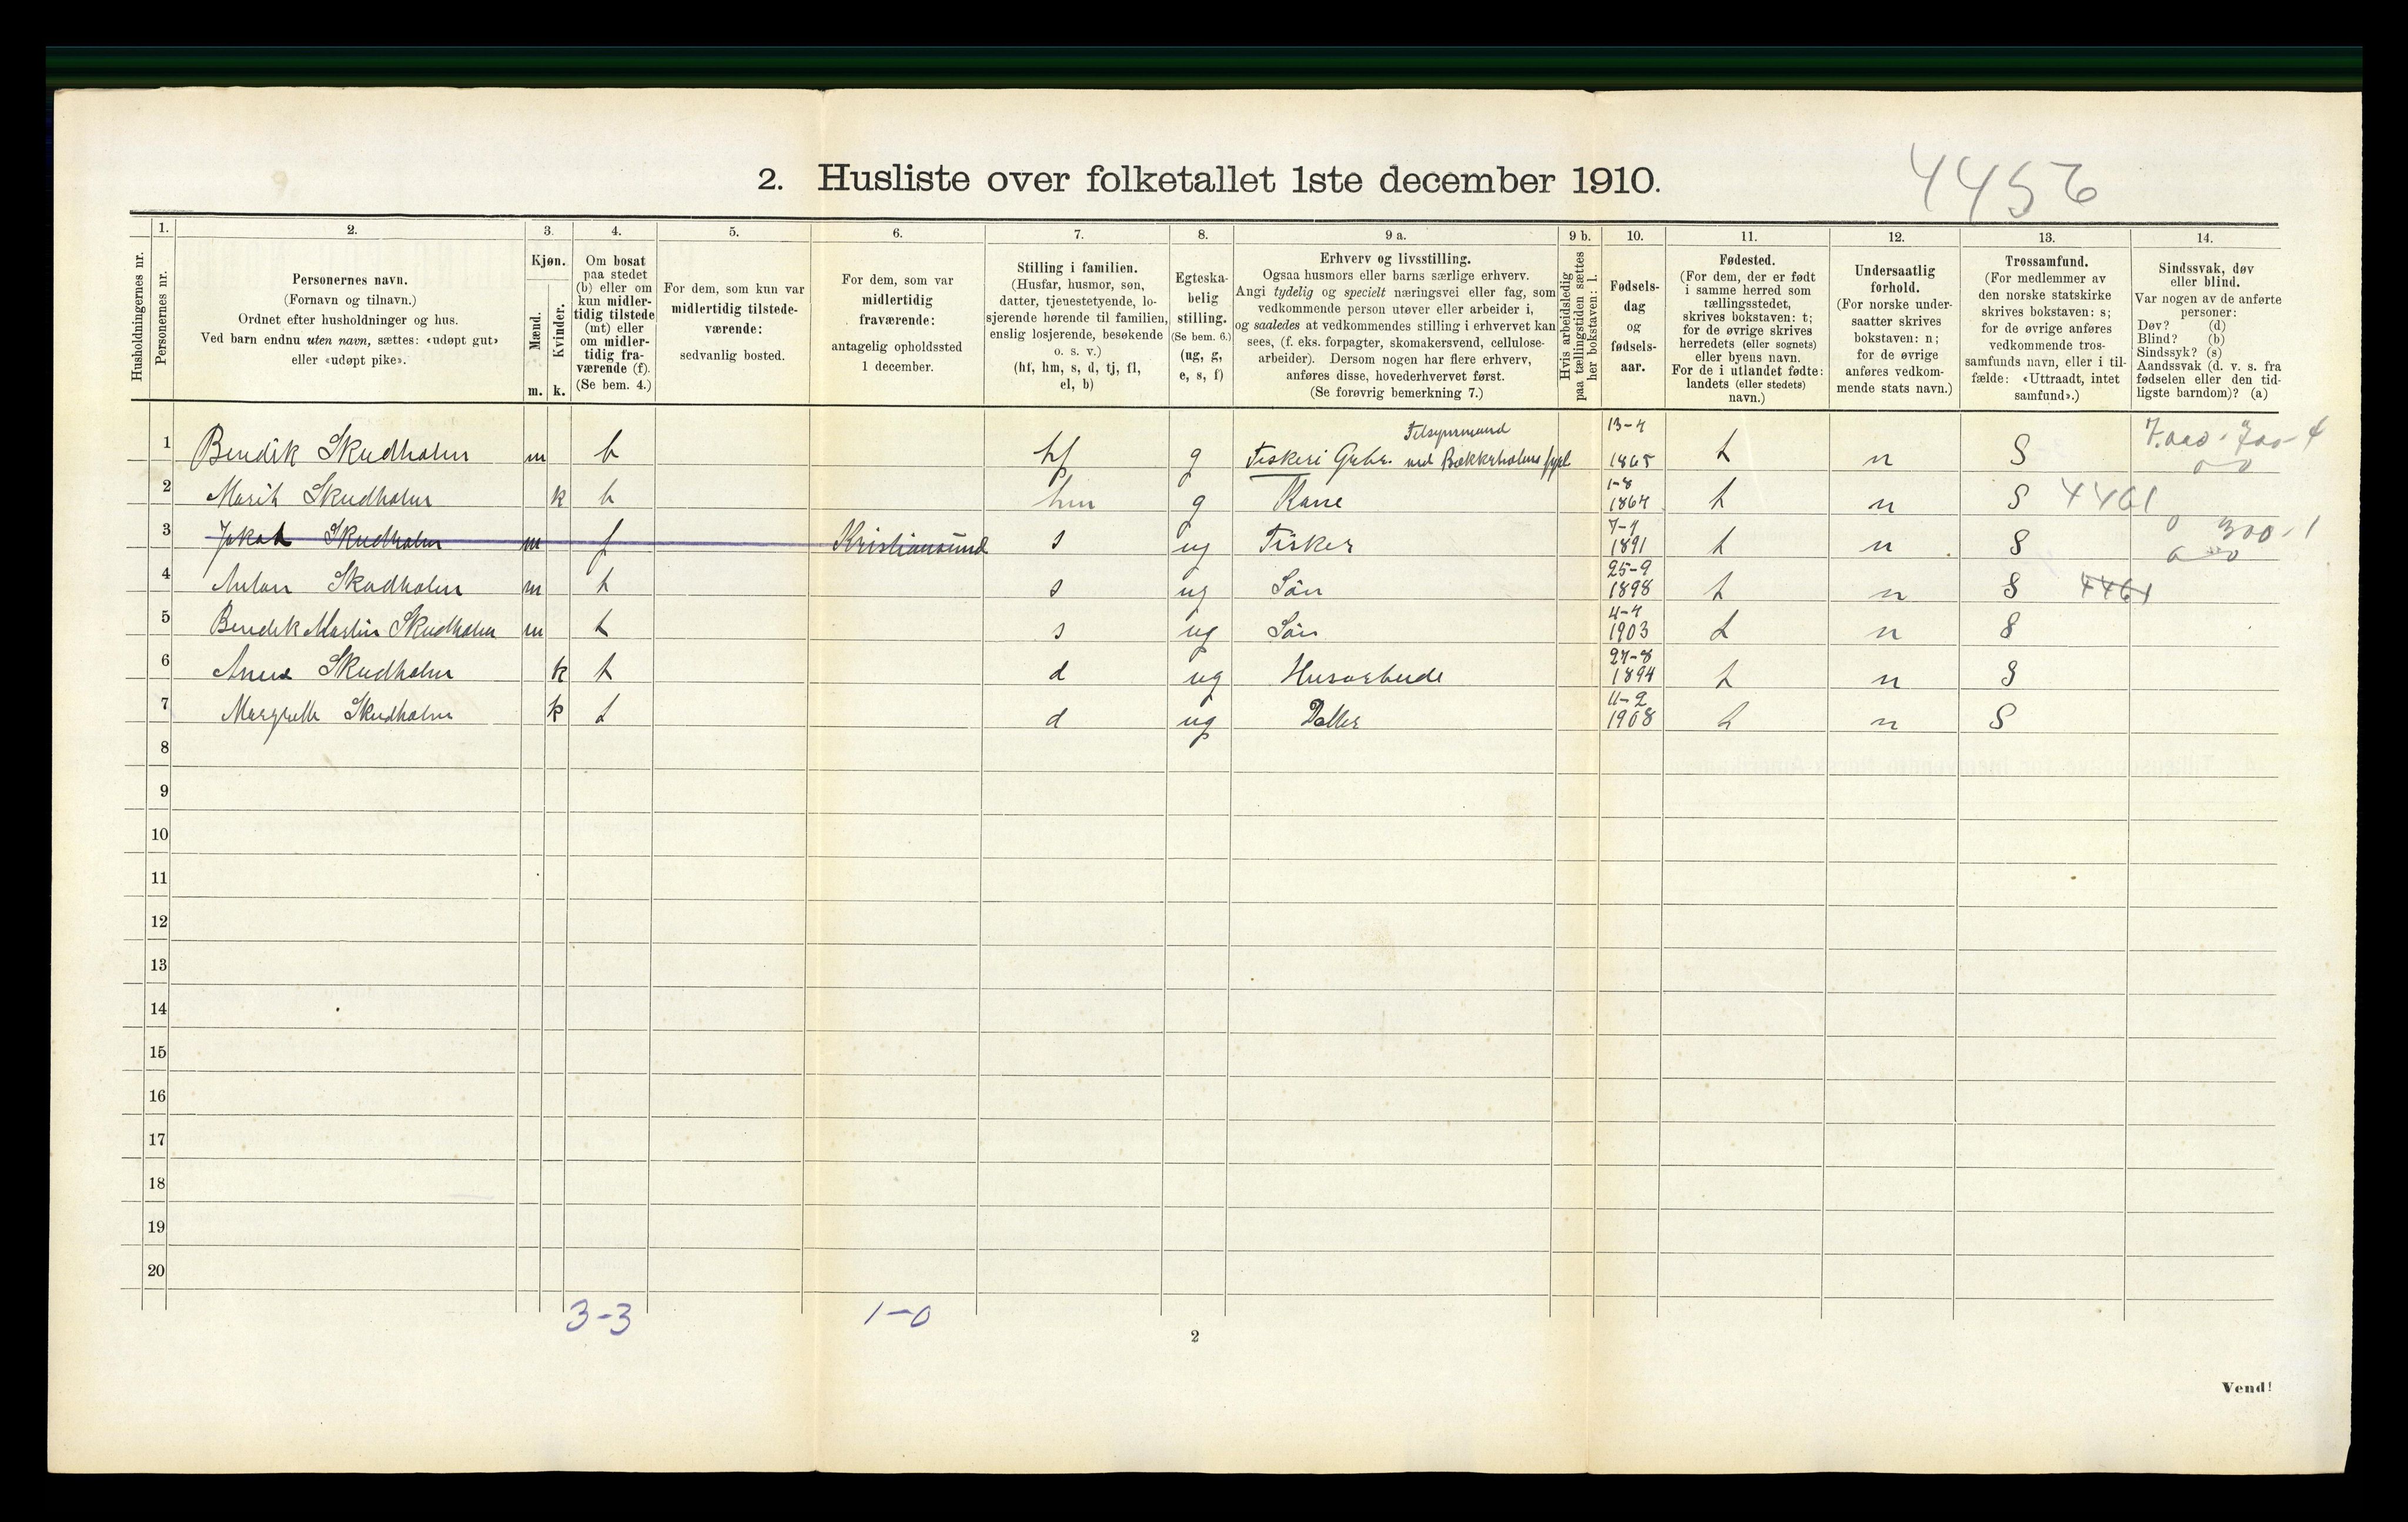 2. Husliste over folketallet 1ste december 1910.
4456
Husholdningernes nr.
1.
Personernes nr.
2.
Personernes navn.
(Fornavn og tilnavn.)
Ordnet efter husholdninger og hus.
Ved barn endnu uten navn, sættes: «udøpt gut»
eller «udøpt pike».
3.
Kjøn.
Mænd.
Kvinder.
m. k.
4.
Om bosat
paa stedet
(b) eller om
kun midler-
tidig tilstede
(mt) eller
om midler-
tidig fra-
værende (f).
(Se bem. 4.)
5.
For dem, som kun var
midlertidig tilstede-
værende:
sedvanlig bosted.
6.
For dem, som var
midlertidig
fraværende:
antagelig opholdssted
1 december.
7.
Stilling i familien.
(Husfar, husmor, søn,
datter, tjenestetyende, lo-
sjerende hørende til familien,
enslig losjerende, besøkende
o. s. v.)
(hf, hm, s, d, tj, fl,
el, b)
8.
Egteska-
belig
stilling.
(Se bem. 6.)
(ug, g,
e, s, f)
9 a.
Erhverv og livsstilling.
Ogsaa husmors eller barns særlige erhverv.
Angi tydelig og specielt næringsvei eller fag, som
vedkommende person utøver eller arbeider i,
og saaledes at vedkommendes stilling i erhvervet kan
sees, (f. eks. forpagter, skomakersvend, cellulose-
arbeider). Dersom nogen har flere erhverv,
anføres disse, hovederhvervet først.
(Se forøvrig bemerkning 7.)
9 b.
Hvis arbeidsledig
paa tællingstiden sættes
her bokstaven: l.
10.
Fødsels-
dag
og
fødsels-
aar.
11.
Fødested.
(For dem, der er født
i samme herred som
tællingsstedet,
skrives bokstaven: t;
for de øvrige skrives
herredets (eller sognets)
eller byens navn.
For de i utlandet fødte:
landets (eller stedets)
navn.)
12.
Undersaatlig
forhold.
(For norske under-
saatter skrives
bokstaven: n;
for de øvrige
anføres vedkom-
mende stats navn.)
13.
Trossamfund.
(For medlemmer av
den norske statskirke
skrives bokstaven: s;
for de øvrige anføres
vedkommende tros-
samfunds navn, eller i til-
fælde: «Uttraadt, intet
samfund».)
14.
Sindssvak, døv
eller blind.
Var nogen av de anførte
personer:
Døv? (d)
Blind? (b)
Sindssyk? (s)
Aandssvak (d. v. s. fra
fødselen eller den tid-
ligste barndom)? (a)
Tilsynsmand 13-4
1 Bendik Skudholm m b hf g Fiskeri ved Bækkerholms fyrl 1865 t n S
1-8
2 Marit Skudholm k b hm g Kone 1867 t n S 4461
7-7
3 Jakob Skudholm m f Kristiansund s ug Fisker 1891 t n S 300-1
25-9
4 Anton Skudholm m b s ug Søn 1898 t n S 4461
4-4
5 Bendik Martin Skudholm m b s ug Søn 1903 t n S
27-8
6 Anna Skudholm k b d ug Husarbeide 1894 t n S
11-2
7 Margrethe Skudholm k b d ug Datter 1908 t n S
8
9
10
11
12
13
14
15
16
17
18
19
20
3-3 1-0
2
Vend!